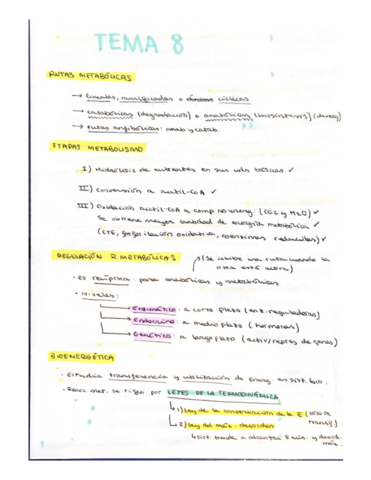 TEMA 8
RUTAS METABÓLICAS
→ lineales, ramificadas o cíclicas
→ catabólicas (degradación) o anabólicas (biosíntesis)
→ rutas anfibólicas: anab y catab.
ETAPAS METABOLISMO
I) Hidrólisis de nutrientes en sus uds básicas ✓
II) Conversión a acetil-CoA ✓
III) Oxidación acetil-CoA a comp inorang. (CO2 y H2O) ✓
Se obtiene mayor cantidad de energía metabólica ✓
(CTE, fosforilación oxidativa, coenzimas reducidos) ✓
REGULACIÓN R. METABÓLICAS
(Se inhibe una ruta cuando la
otra está activa)
- Es recíproca: para anabólicas y metabólicas
- Niveles:
→ Enzimático: a corto plazo (enz. reguladoras)
→ Endocrino: a medio plazo (hormonas)
→ Genético: a largo plazo (activ/repres de genes)
BIOENERGÉTICA
- Estudia transferencia y utilización de energ. en sist. bio.
- Reacc. met. se rigen por LEYES DE LA TERMODINÁMICA
↳ 1) Ley de la conservación de la E (sólo se
transf)
↳ 2) Ley del máx. desorden
↳ sist. tiende a alcanzar E mín. y desord.
máx.